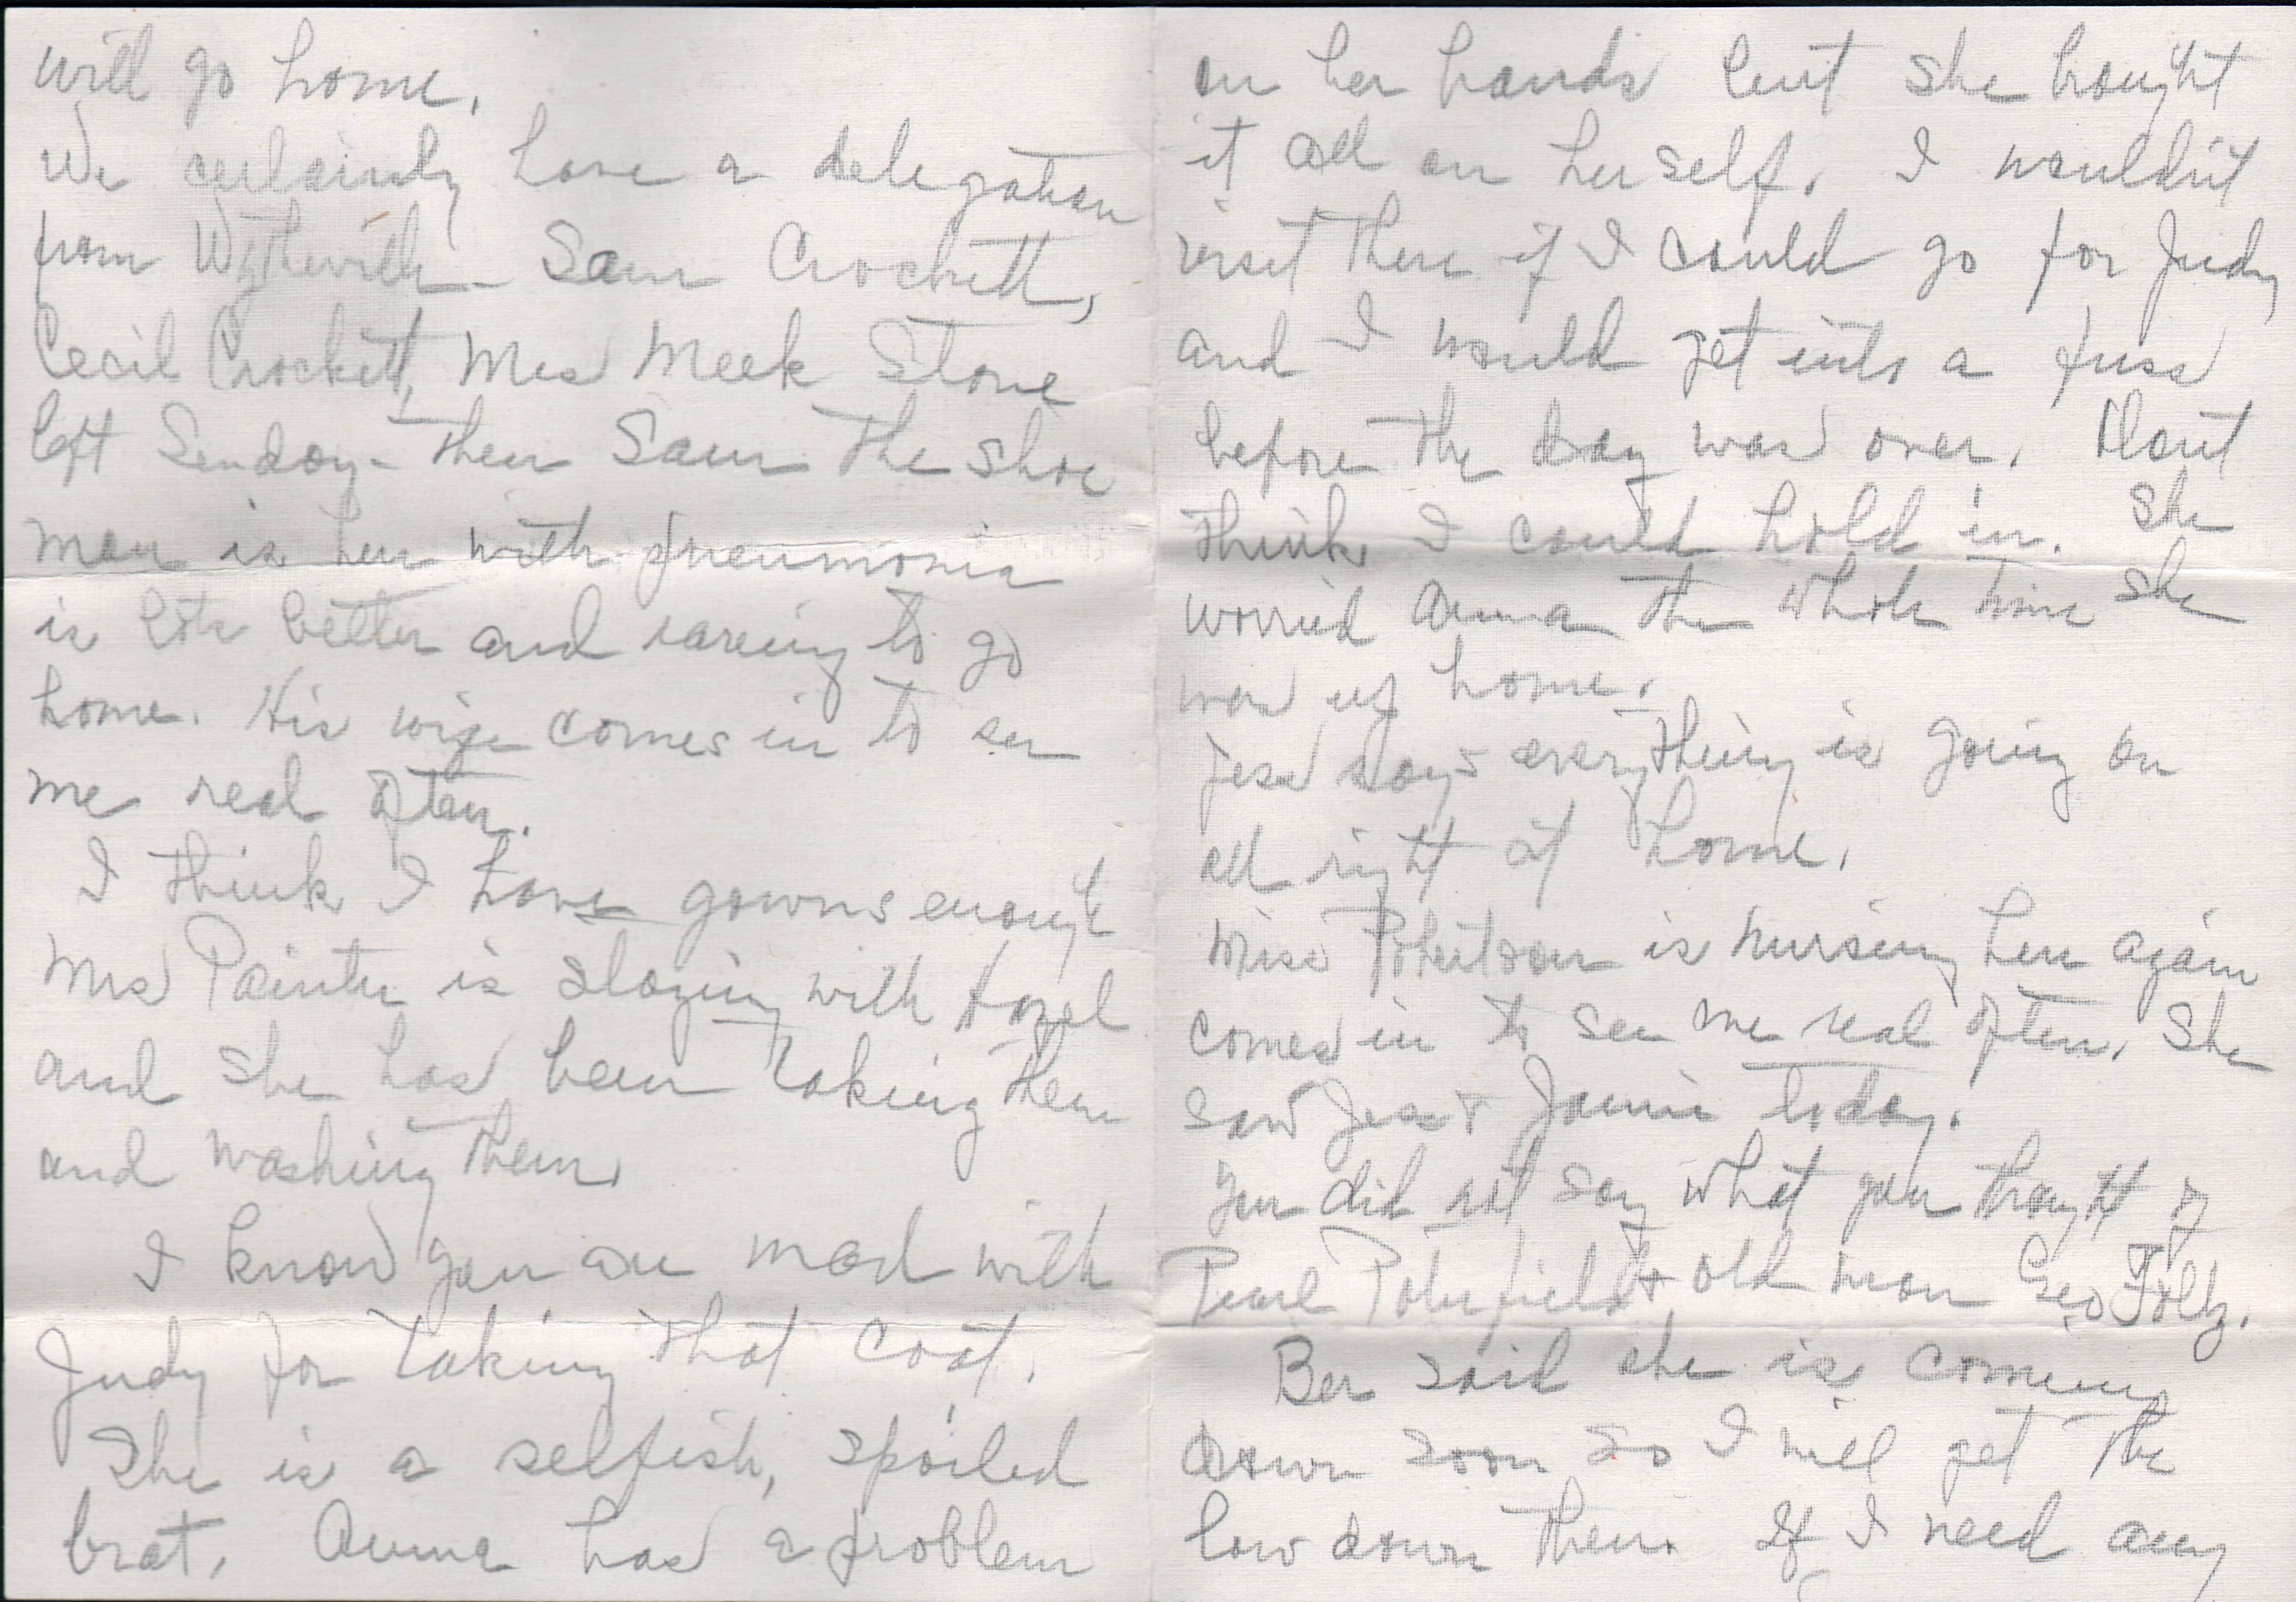 will go home.
We certainly have a delegation
from Wytheville - Sam Crockett,
Cecil Crockett, Mrs Meek Stone
left Sunday - then Sam the shoe
man is here with pneumonia
is lots better and raring to go
home. His wife comes in to see
me real often.
I think I have gowns enough
Mrs Painter is staying with Hazel
and she has been taking them
and washing them.
I know you are mad with
Judy for taking that coat.
She is a selfish, spoiled
brat. Anna has a problem
on her hands but she brought
it all on herself. I wouldn't
visit there if I could go for Judy
and I would get into a fuss
before the day was over. Don't
think I could hold in. She
worried Anna the whole time she
was up home.
Jess says everything is going on
all right at home.
Miss Robertson is nursing here again
comes in to see me real often. She
saw Jess & Jamie today.
You did not say what you thought of
Pearl & old man Geo Foltz.
Bea said she is coming
down soon so I will get the
low down then. If I need any